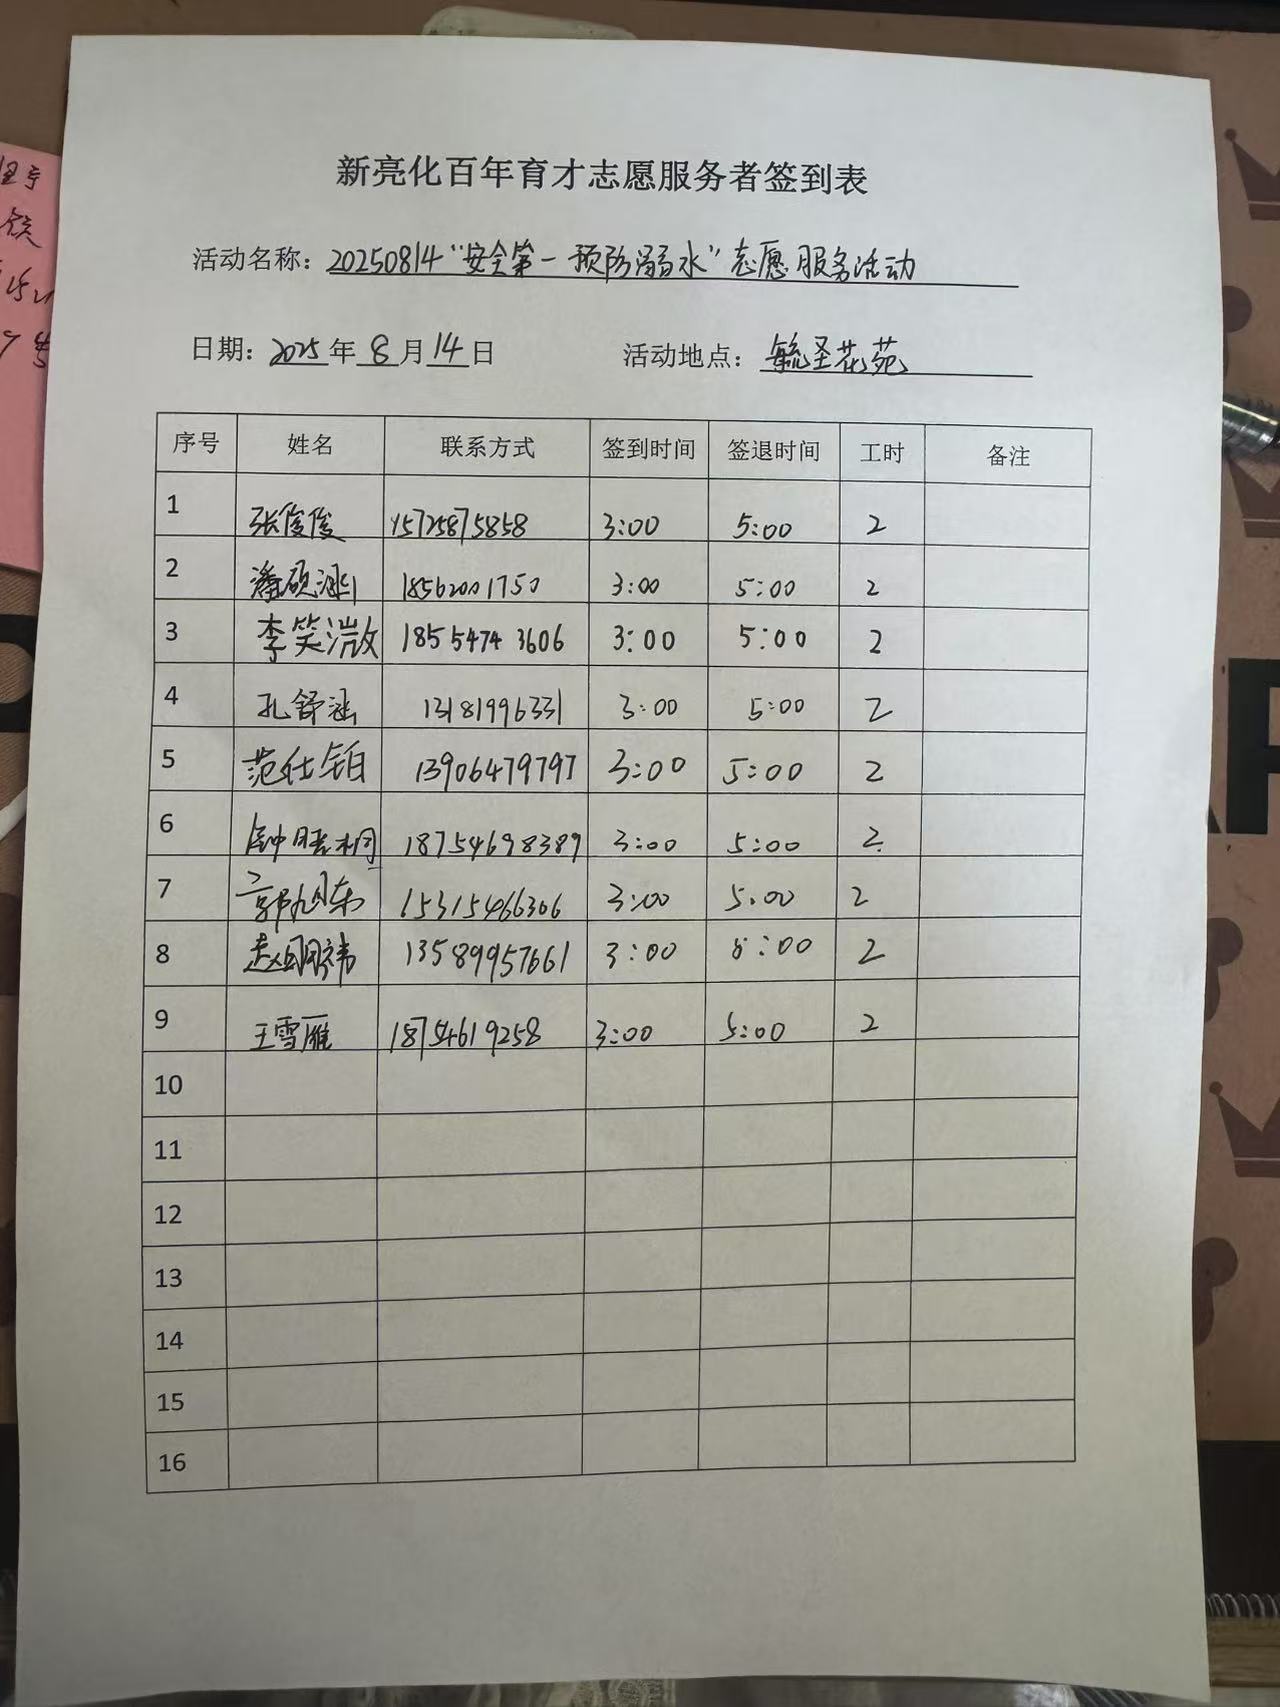 新亮化百年育才志愿服务者签到表
活动名称：20250814“安全第一 预防溺水”志愿服务活动
日期：2025年8月14日 活动地点：毓圣花苑
序号 姓名 联系方式 签到时间 签退时间 工时 备注
1 张俊俊 15725875858 3:00 5:00 2
2 潘硕 18562001750 3:00 5:00 2
3 李笑溦 18554743606 3:00 5:00 2
4 孔舒涵 13181996331 3:00 5:00 2
5 范仕铂 13906479797 3:00 5:00 2
6 钟 桐 18754698389 3:00 5:00 2
7 郭旭东 15315466306 3:00 5:00 2
8 赵 祎 13589957661 3:00 :00 2
9 王雪雁 18754619258 3:00 5:00 2
10
11
12
13
14
15
16